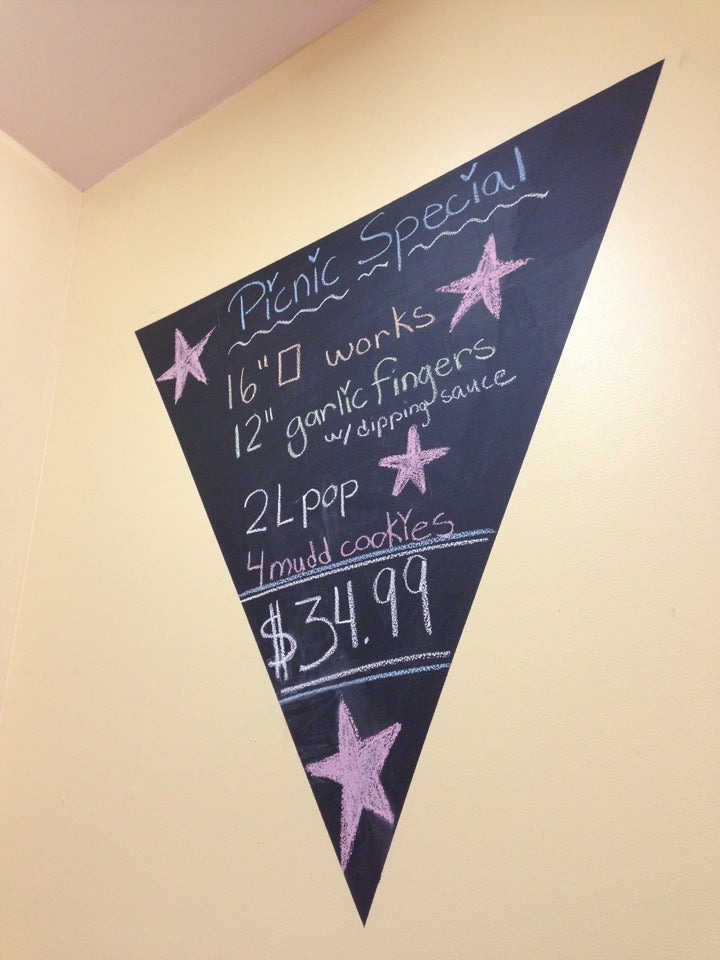 Picnic Special
16" □ works
12" garlic fingers
w/ dipping sauce
2L pop
4 mudd cookies
$34.99